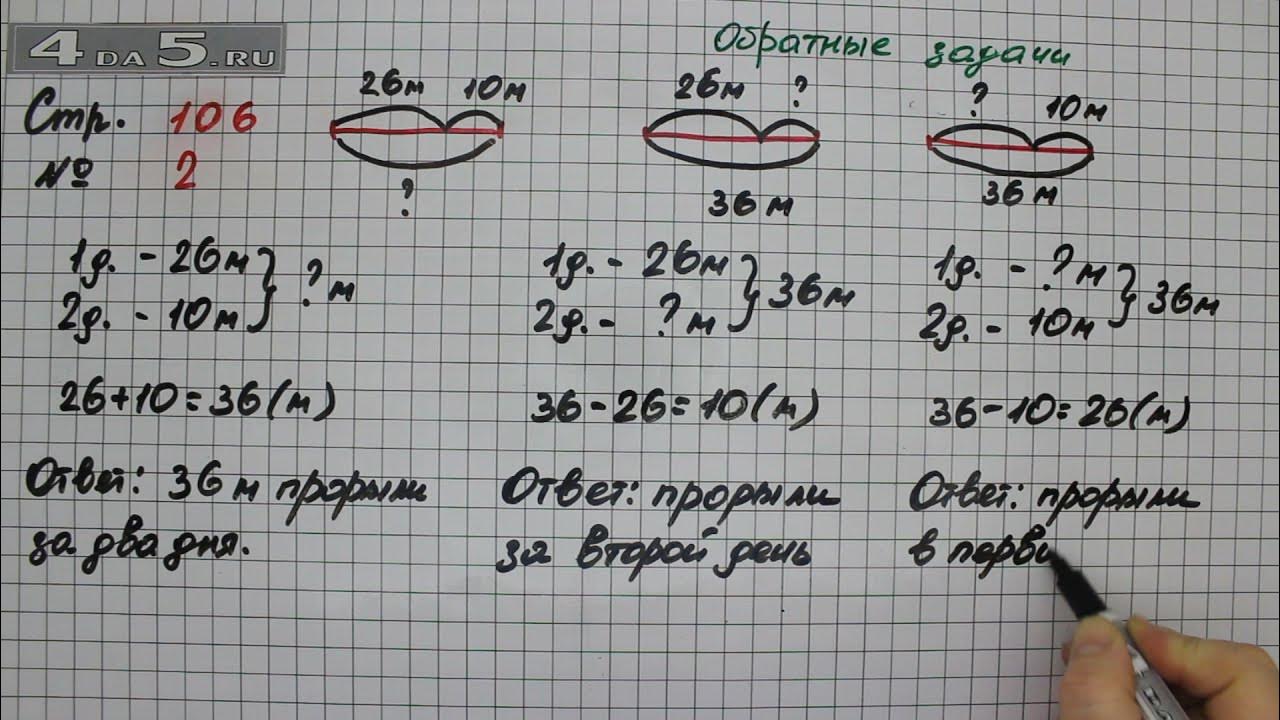 4ДА5.RU
Обратные задачи
Стр. 106
№ 2
26м 10м
?
26м ?
36м
? 10м
36м
1д. - 26м
2д. - 10м
? м
26+10=36(м)
Ответ: 36м прорыли
за два дня.
1д. - 26м
2д. - ? м
36м
36-26=10(м)
Ответ: прорыли
за второй день
1д. - ? м
2д. - 10м
36м
36-10=26(м)
Ответ: прорыли
в перви